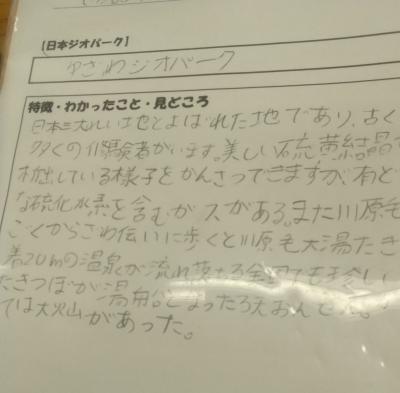 【日本ジオパーク】
ゆざわジオパーク
特徴・わかったこと・見どころ
日本三大れい地とよばれた地であり、古く
多くの 験者がいます。美しい硫黄結晶
出している様子をかんさつできますが、有ど
な硫化水素を含むガスがある。また川原毛
ごくからさわ伝いに歩くと川原毛大湯たき
差20mの温泉が流れ落ちる全国でも珍しい
たきつぼが湯舟。とまったろ
ては大火山があった。